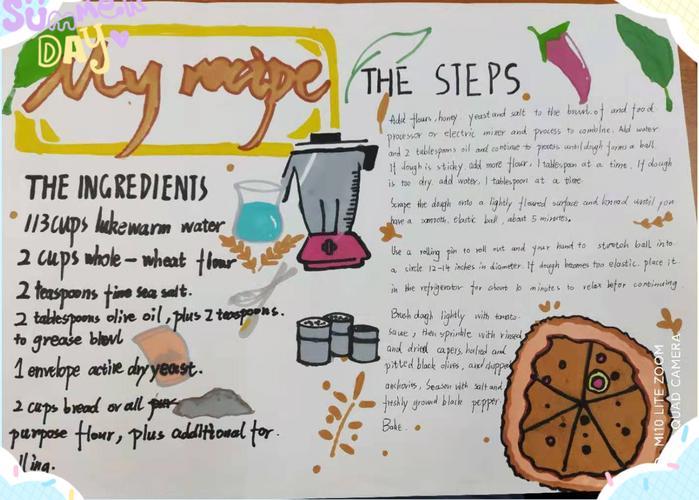 SUMMER
DAY
My recipe
THE INGREDIENTS
1 1/3 cups lukewarm water
2 cups whole-wheat flour
2 teaspoons fine sea salt.
2 tablespoons olive oil, plus 2 teaspoons.
to grease blowl
1 envelope active dry yeast.
2 cups bread or all
purpose flour, plus additional for.
THE STEPS
Add flours, honey yeast and salt to the bowl of and food
processor or electric mixer and process to combine. Add water
and 2 tablespoons oil and continue to process until dough forms a ball.
If dough is sticky add more flour, 1 tablespoon at a time. If dough
is too dry, add water, 1 tablespoon at a time.
Scrape the dough onto a lightly floured surface and knead until you
have a smooth, elastic ball, about 5 minutes.
Use a rolling pin to roll out and your hand to stretch ball into
a circle 12-14 inches in diameter. If dough becomes too elastic. place it
in the refrigerator for about 10 minutes to relax befor continuing.
Brush dogh lightly with tomato.
sauce, then sprinkle with rinsed
and dried capers, halved and
pitted black olives, and chopped
anchovies, Season with salt and
freshly ground black pepper.
Bake.
MI 10 LITE ZOOM
QUAD CAMERA